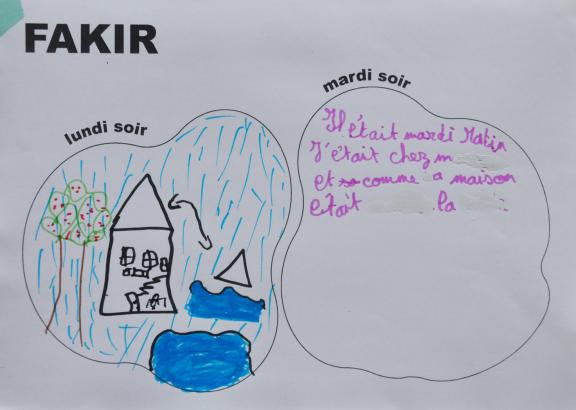 FAKIR
lundi soir
mardi soir
Il était mardi Matin
J'était chez m
et comme a maison
etait la